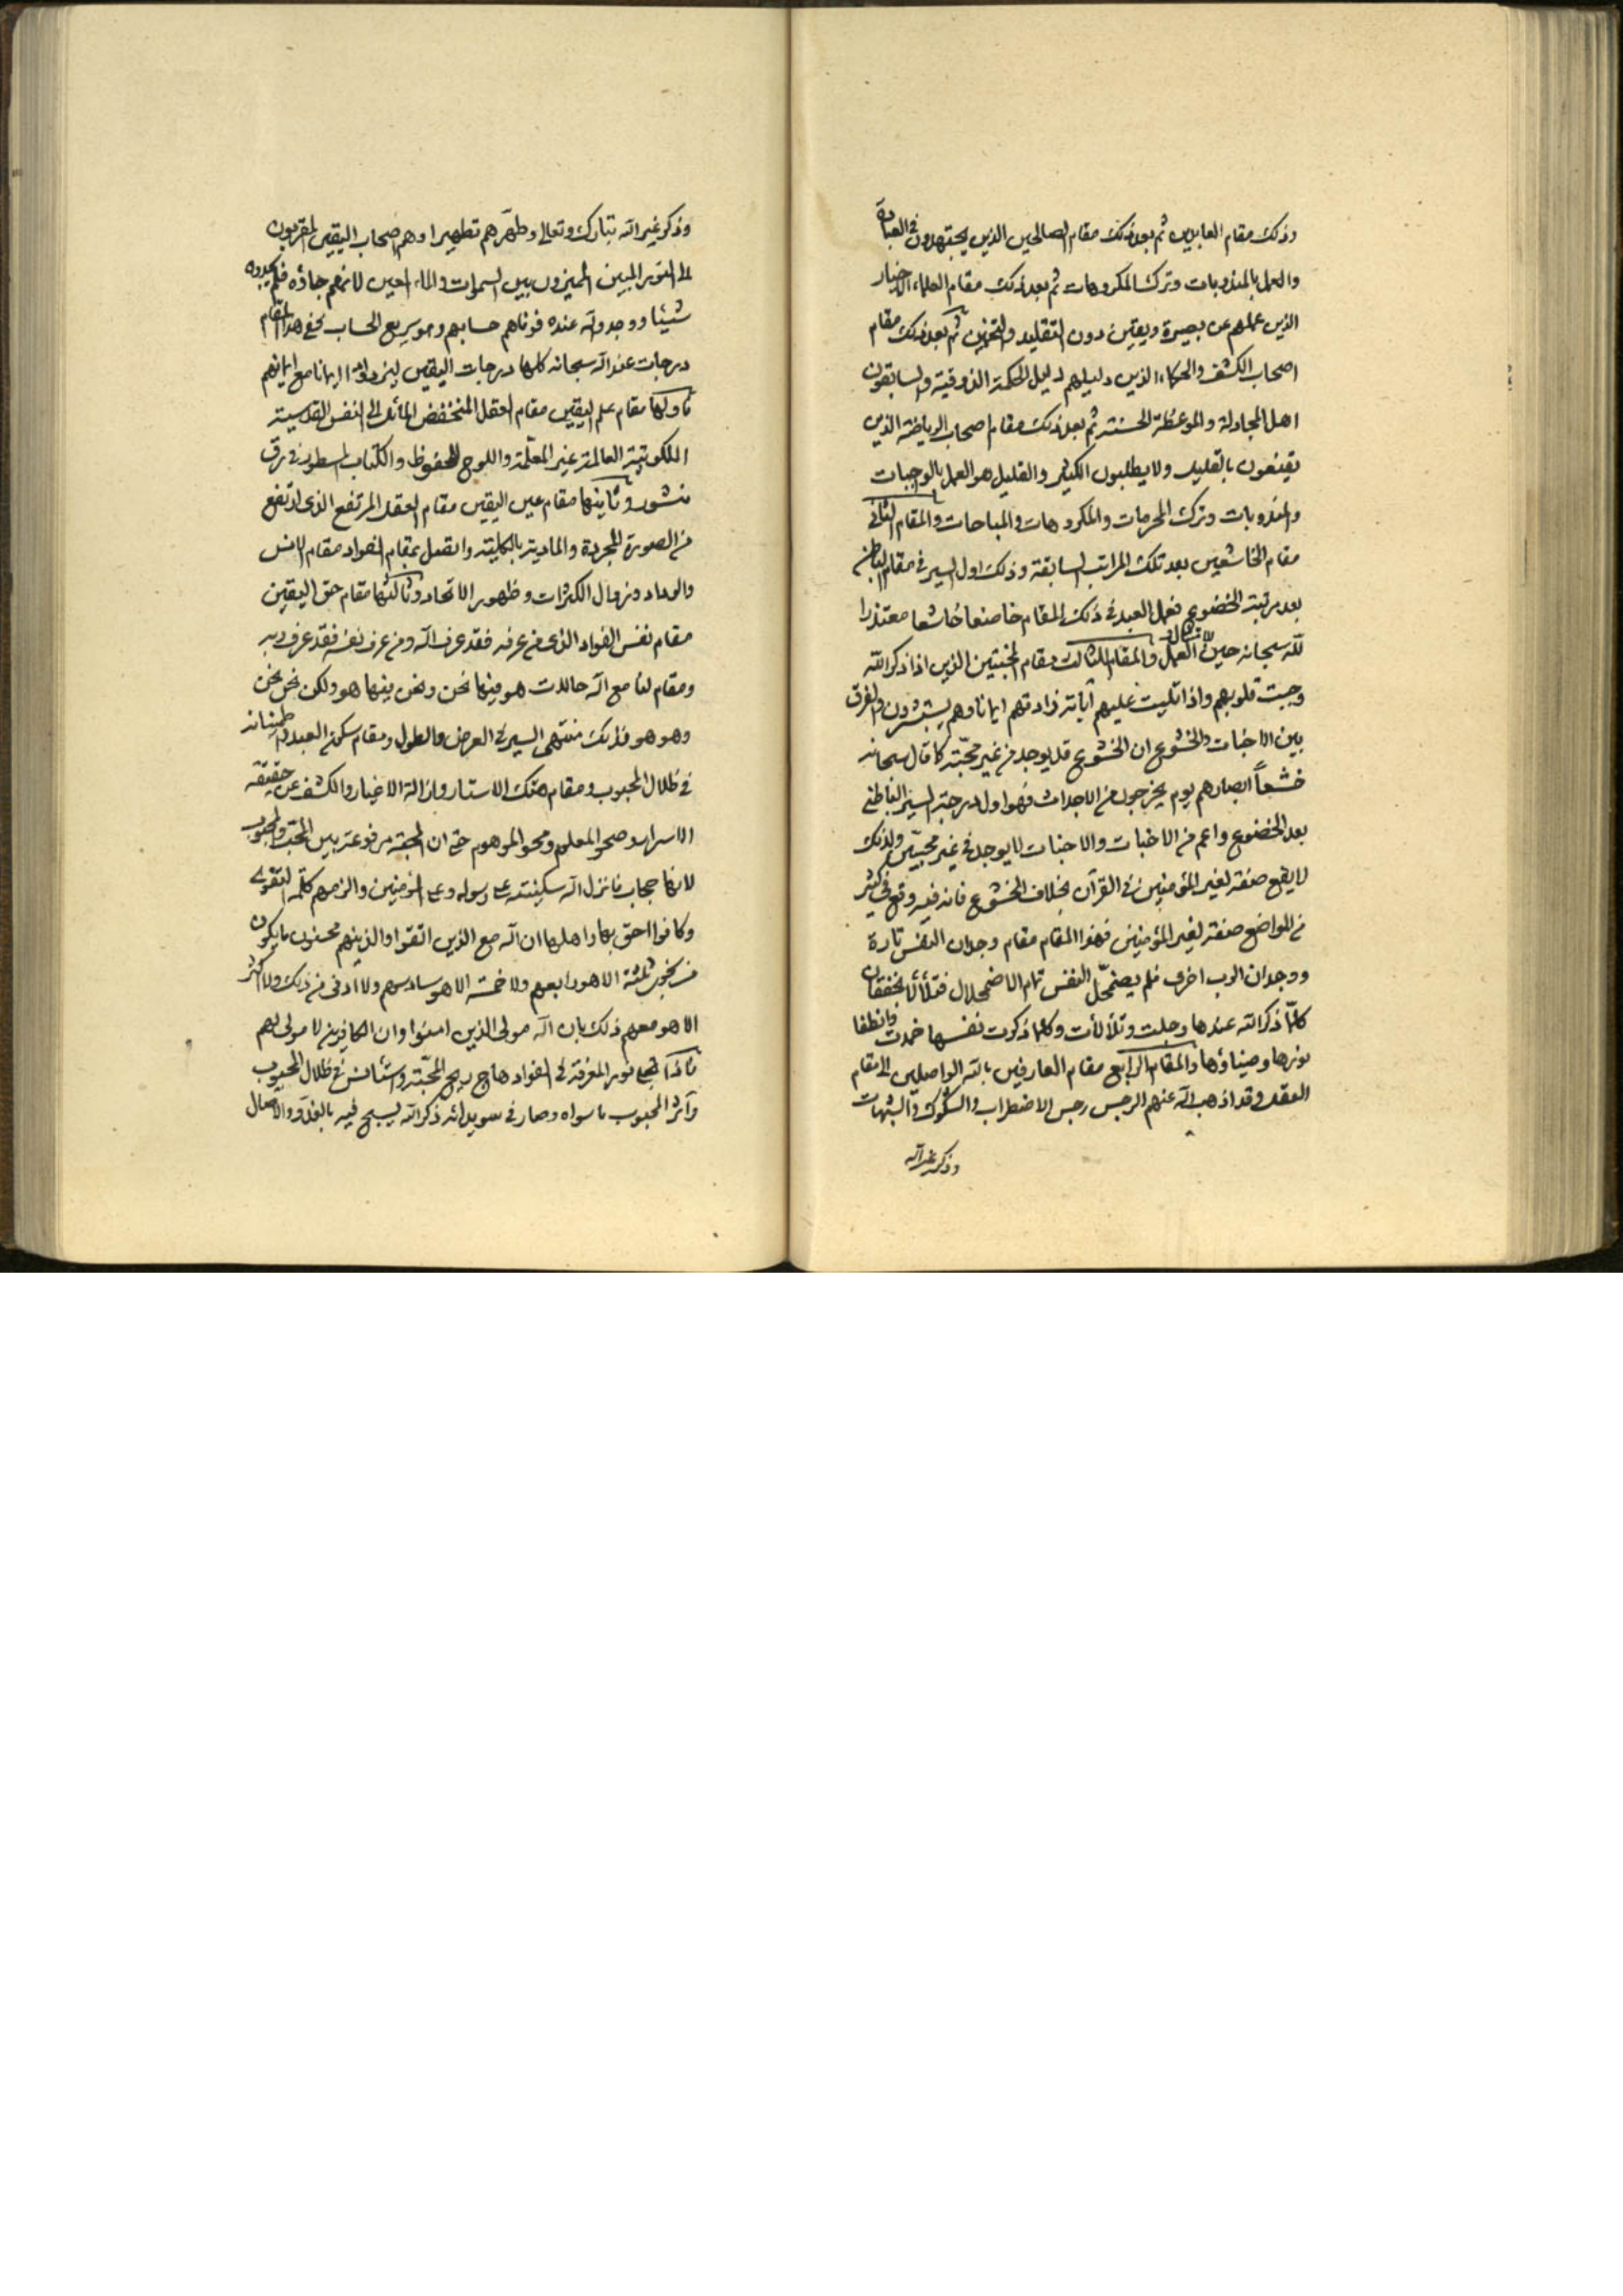 وذلك مقام العابدين ثم بعد ذلك مقام الصالحين الذين يجتهدون في العبادة
والعمل بالمندوبات وترك المكروهات ثم بعد ذلك مقام العلماء الاخيار
الذين عملهم عن بصيرة ويقين دون التقليد والتخمين ثم بعد ذلك مقام
اصحاب الكشف والحكماء الذين دليلهم دليل الحكمة الذوقية والسابقون
اهل المجادلة والموعظة الحسنة ثم بعد ذلك مقام اصحاب الرياضة الذين
يقنعون بالقليل ولا يطلبون الكثير والقليل هو العمل بالواجبات
والمندوبات وترك المحرمات والمكروهات والمباحات والمقام الثاني
مقام الخاشعين بعد تلك المراتب السابقة وذلك اول السير في مقام الباطن
بعد مرتبة الخضوع فعمل العبد في ذلك المقام خاضعا خاشعا معتذرا
لله سبحانه حين العمل والمقام الثالث مقام المخبتين الذين اذا ذكر الله
وجبت قلوبهم واذا تليت عليهم آياته زادتهم ايمانا وهم يستبشرون والفرق
بين الاخبات والخشوع ان الخشوع قد يوجد من غير محبة كما قال سبحانه
خشعاً ابصارهم يوم يخرجون من الاجداث فهو اول درجة السير الباطني
بعد الخضوع واعم من الاخبات والاخبات لا يوجد في غير محبين ولذلك
لا يقع صفة لغير المؤمنين في القرآن بخلاف الخشوع فانه فيه وقع في كثير
من المواضع صفة لغير المؤمنين فهذا المقام مقام وجدان النفس تارة
ووجدان الرب اخرى فلم يضمحل النفس تمام الاضمحلال
كلما ذكر الله عندها وجلت وتلألأت وكلما ذكرت نفسها خمدت وانطفا
نورها وضياؤها والمقام الرابع مقام العارفين بالله الواصلين الى مقام
العقل وقد اذهب الله عنهم الرجس رجس الاضطراب والشكوك والشبهات
وذكر غير الله
وذكر غير الله تبارك وتعالى وطهرهم تطهيرا وهم اصحاب اليقين المقربون
الى النور المبين المميزون بين السموات والماء المعين لانهم جاؤه فلم يجدوه
شيئا ووجدوا الله عنده فوفاهم حسابهم وهو سريع الحساب ففي هذا المقام
درجات عند الله سبحانه كلها درجات اليقين ليزدادوا ايمانا مع ايمانهم
فاولها مقام علم اليقين مقام العقل المنخفض المائل الى النفس القدسية
الملكوتية العالمة غير المعلّمة واللوح المحفوظ والكتاب المسطور في رق
منشور وثانيها مقام عين اليقين مقام العقل المرتفع الذي ارتفع
من الصورة المجردة والمادية بالكلية واتصل بمقام الفؤاد مقام الانس
والوداد وزوال الكثرات وظهور الاتحاد وثالثها مقام حق اليقين
مقام نفس الفؤاد الذي من عرفه فقد عرف الله ومن عرف نفسه فقد عرف ربه
ومقام لنا مع الله حالات هو فيها نحن ونحن فيها هو ولكن نحن نحن
وهو هو فذلك منتهى السير في العرض والطول ومقام سكون العبد واطمينانه
في ظلال المحبوب ومقام هتك الاستار وازالة الاغيار والكشف عن حقيقة
الاسرار وصحو المعلوم ومحو الموهوم حتى ان المحبة مرفوعة بين المحب والمحبوب
لانها حجاب فانزل الله سكينته على رسوله وعلى المؤمنين والزمهم كلمة التقوى
وكانوا احق بها واهلها ان الله مع الذين اتقوا والذين هم محسنون ما يكون
من نجوى ثلثة الا هو رابعهم ولا خمسة الا هو سادسهم ولا ادنى من ذلك ولا اكثر
الا هو معهم ذلك بان الله مولى الذين امنوا وان الكافرين لا مولى لهم
فاذا تجلى نور المعرفة في الفؤاد هاج ريح المحبة واستأنس في ظلال المحبوب
وآثر المحبوب ما سواه وصار في سويدائه ذكر الله يسبح فيه بالغدو والآصال